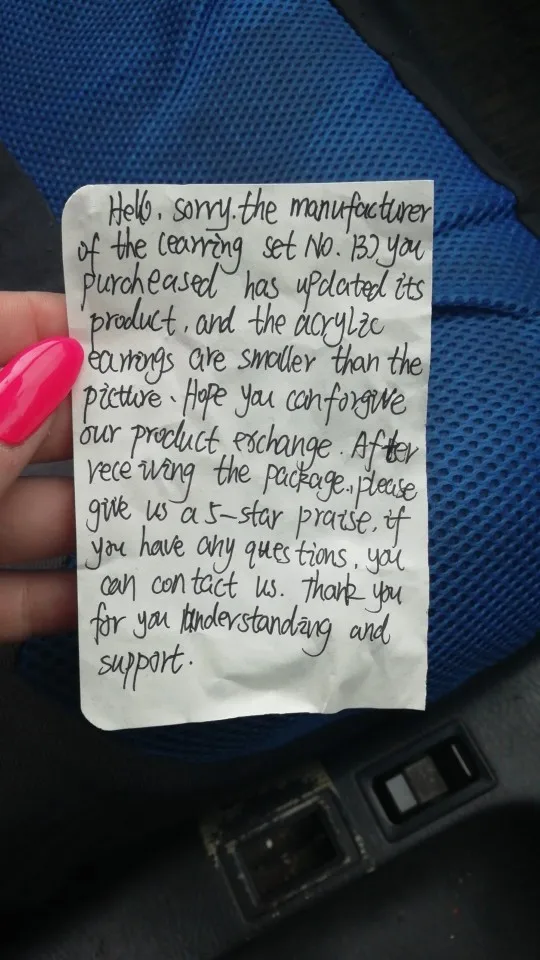 Hello, sorry. the manufacturer
of the (earring set No. 13) you
purcheased has updated its
product, and the acrylic
earrings are smaller than the
picture. Hope you can forgive
our product exchange. After
receiving the package, please
give us a 5-star praise, if
you have any questions, you
can contact us. Thank you
for you Understanding and
support.